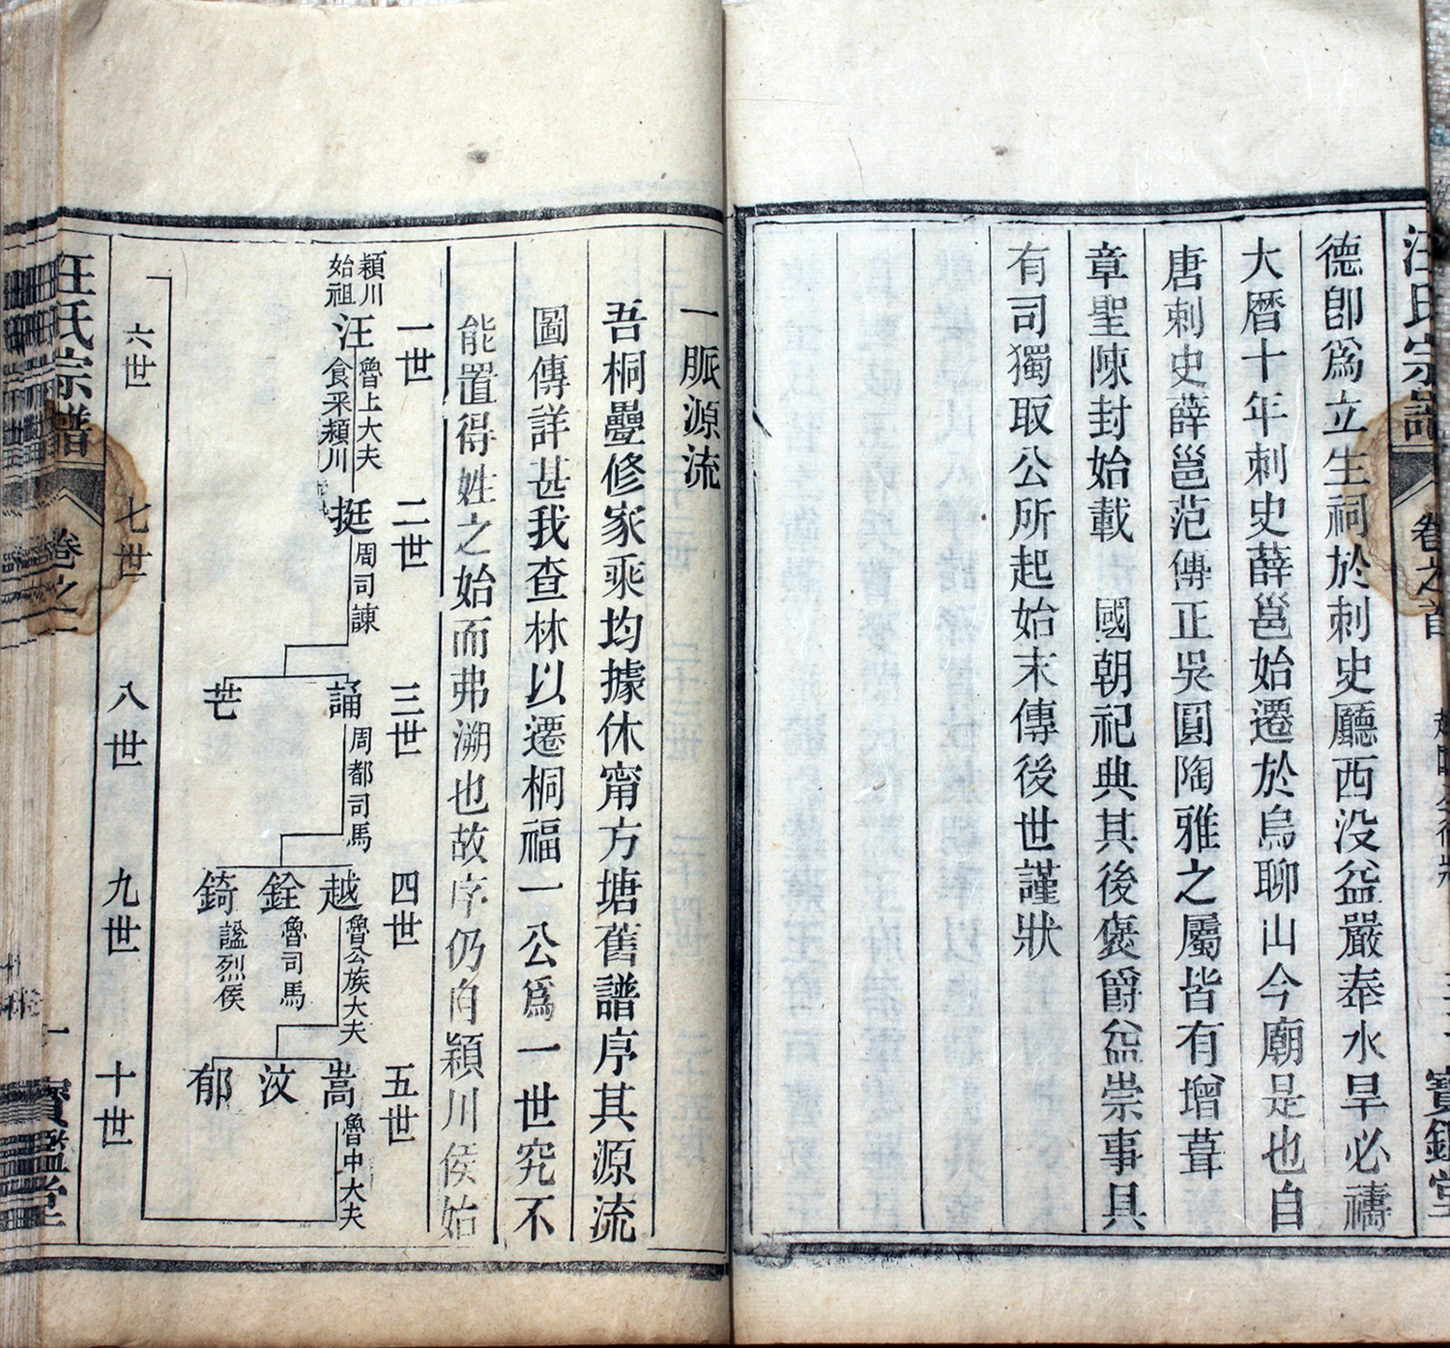 德卽爲立生祠於刺史廳西没益嚴奉水旱必禱
大暦十年刺史薛邕始遷於烏聊山今廟是也自
唐刺史薛邕范傳正吳圓陶雅之屬皆有增葺
章聖陳封始載　國朝祀典其後褒爵益崇事具
有司獨取公所起始末傳後世謹狀
一脈源流
吾桐疊修家乘均據休甯方塘舊譜序其源流
圖傳詳甚我查林以遷桐福一公爲一世究不
能置得姓之始而弗溯也故序仍自頴川侯始
一世
二世
三世
四世
五世
頴川始祖
汪
魯上大夫食采頴川
挺
周司諫
誦
周都司馬
芒
越
魯公族大夫
銓
魯司馬
錡
謚烈侯
嵩
魯中大夫
汶
郁
六世
七世
八世
九世
十世
汪氏宗譜
卷之一
一
寶鑑堂